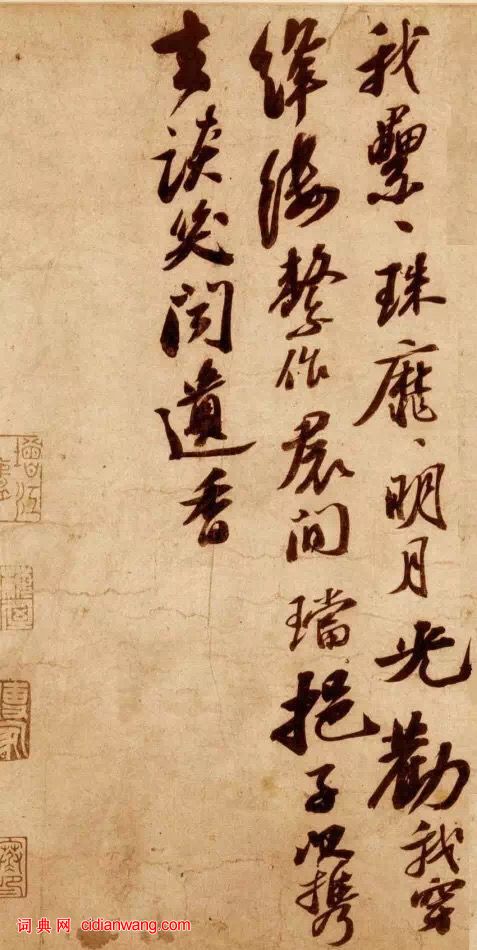 我纍、珠靡、明月光勸我穿
絳縷繫作裠間璫挹子以攜
去談笑聞遺香
词典网 cidianwang.com